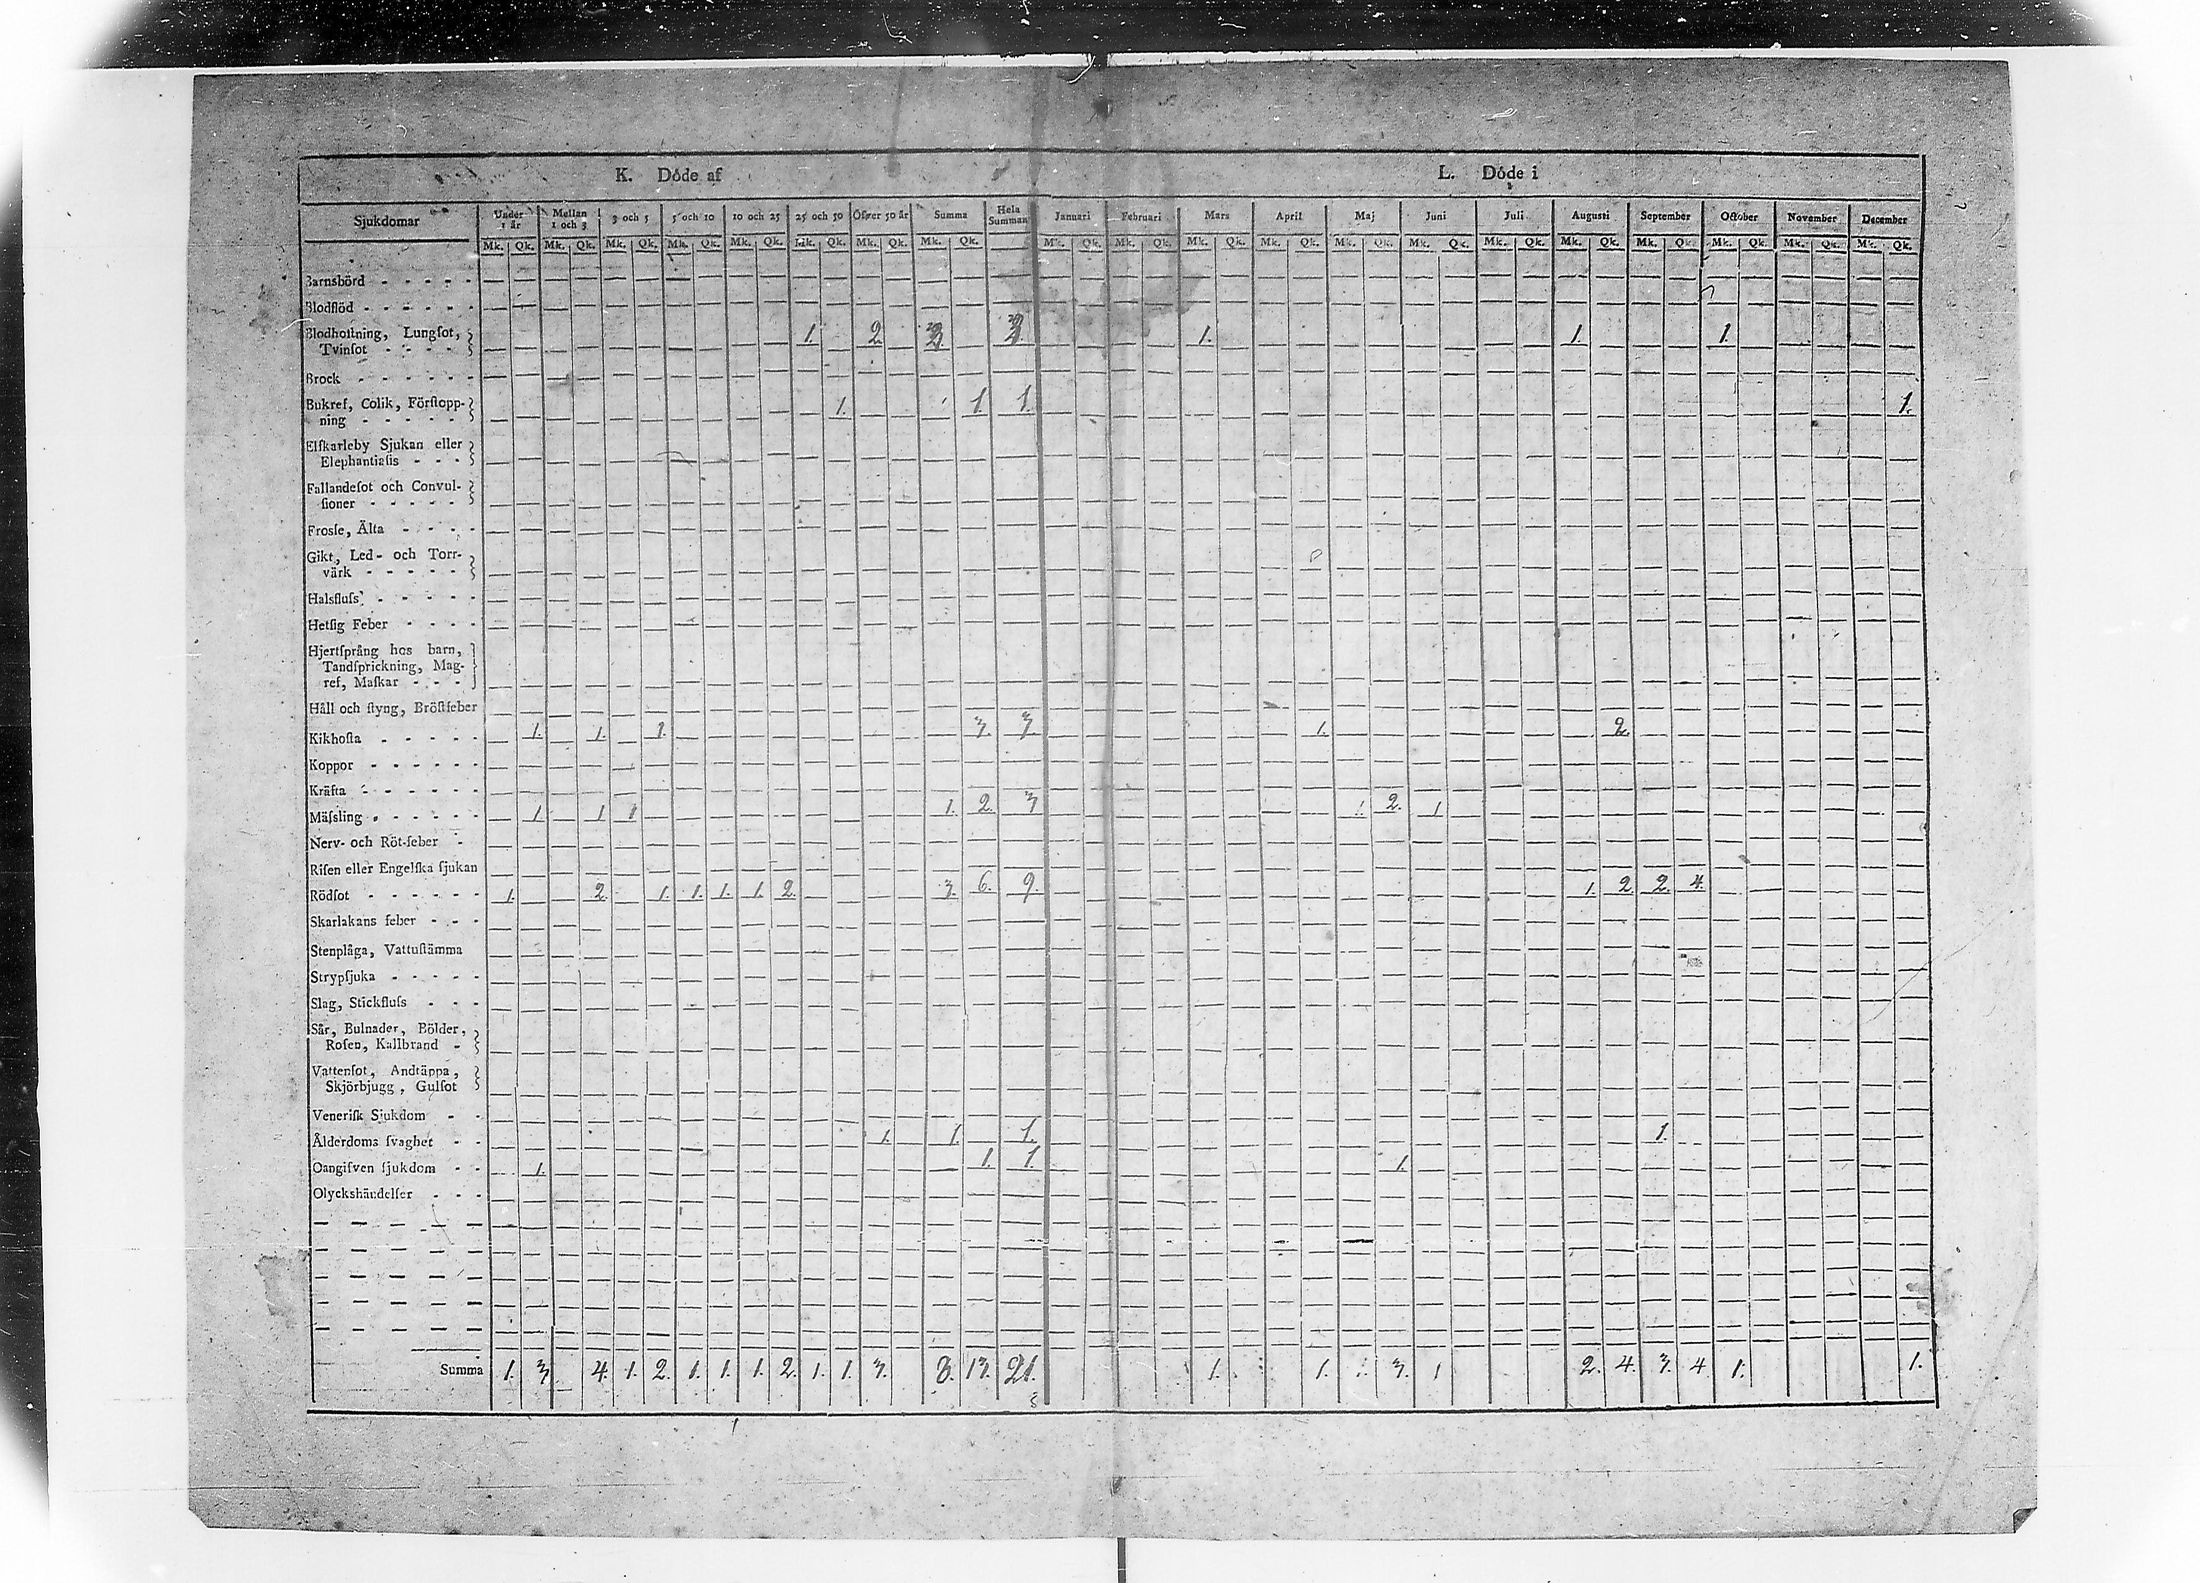 K. Döde af L. Döde i
Sjukdomar Under 1 år Mellan 1 och 3 3 och 5 5 och 10 10 och 25 25 och 50 Öfver 50 år Summa Hela Summan Januari Februari Mars April Maj Juni Juli Augusti September October November December
Mk. Qk. Mk. Qk. Mk. Qk. Mk. Qk. Mk. Qk. Mk. Qk. Mk. Qk. Mk. Qk. Mk. Qk. Mk. Qk. Mk. Qk. Mk. Qk. Mk. Qk. Mk. Qk. Mk. Qk. Mk. Qk. Mk. Qk. Mk. Qk. Mk. Qk. Mk. Qk.
Barnsbörd - - - - -
Blodflöd - - - - - -
Blodhoſtning, Lungſot,
Tvinſot - - - - 1. 2. 3. 3. 1. 1. 1.
Brock - - - - - -
Bukref, Colik, Förſtopp-
ning - - - - - 1. 1. 1. 1.
Elſkarleby Sjukan eller
Elephantiaſis - - -
Fallandeſot och Convul-
ſioner - - - - -
Frosſe, Älta - - - -
Gikt, Led- och Torr-
värk - - - - -
Halsfluſs - - - - -
Hetſig Feber - - - -
Hjertſprång hos barn,
Tandſprickning, Mag-
ref, Maſkar - - -
Håll och ſtyng, Bröſtfeber
Kikhoſta - - - - - 1. 1. 1. 3. 3. 1. 2.
Koppor - - - - - -
Kräfta - - - - - -
Mäſsling - - - - - - 1 1 1 1. 2. 3 1. 2. 1
Nerv- och Röt-feber -
Riſen eller Engelſka ſjukan
Rödſot - - - - - - 1. 2. 1. 1. 1. 1. 2. 3. 6. 9. 1. 2. 2. 4.
Skarlakans feber - - -
Stenplåga, Vattuſtämma
Strypſjuka - - - - -
Slag, Stickfluſs - - -
Sår, Bulnader, Bölder,
Roſen, Kallbrand -
Vattenſot, Andtäppa,
Skjörbjugg, Gulſot
Veneriſk Sjukdom - -
Ålderdoms ſvaghet - - 1. 1. 1. 1.
Oangifven ſjukdom - - 1. 1. 1. 1.
Olyckshändelſer - - -
Summa 1. 3 4. 1. 2. 1. 1. 1. 2. 1. 1. 3. 8. 13. 21. 1. 1. 1. 3. 1 2. 4. 3. 4 1. 1.